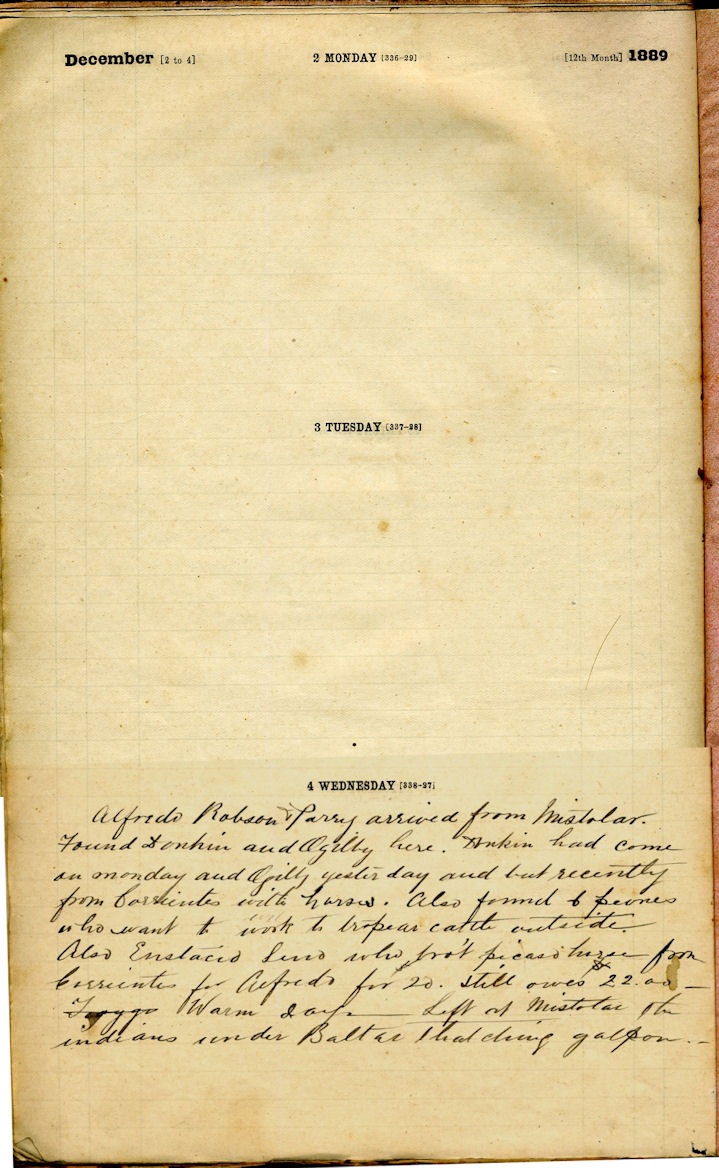 December [2 to 4] 2 MONDAY [336-29] [12th Month] 1889
3 TUESDAY [337-28]
4 WEDNESDAY [338-27]
Alfredo Robson & Parry arrived from Mistolar.
Found Donkin and Ogilby here. Donkin had come
on monday and Ogilby yesterday and but recently
from Corrientes with horses. Also found 6 peones
who want to work to tropear cattle outside.
Also Enstacio who bro't picaso horse from
Corrientes for Alfredo for $20. Still owes $22.00 —
Warm day. — Left at Mistolar the
indians under Baltar thatching galpon. —